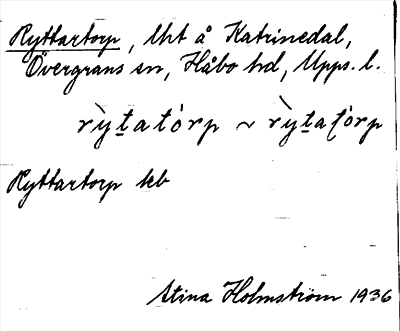 Ryttartorp, lht å Katrinedal,
Övergrans sn, Håbo hd, Upps. l.
rỳt̲atórp ~ rỳt̲atórp
Ryttartorp teb
Stina Holmström 1936